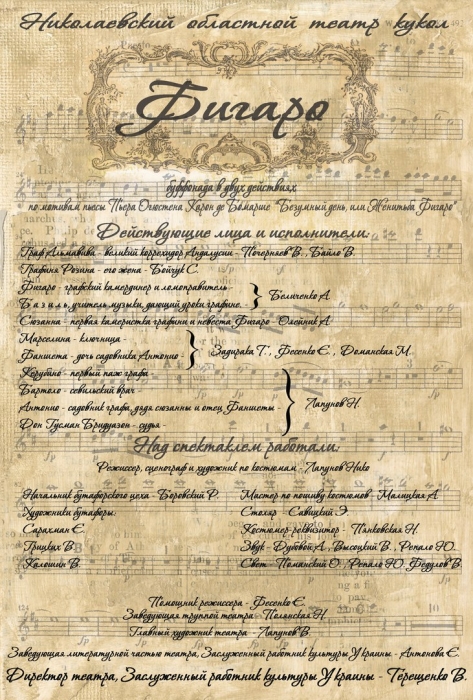 Николаевский областной театр кукол
Фигаро
буффонада в двух действиях
по мотивам пьесы Пьера Огюстена Карон де Бомарше "Безумный день, или Женитьба Фигаро"
Действующие лица и исполнители:
Граф Альмавива - великий коррехидор Андалусии - Почерняев В., Байло В.
Графиня Розина - его жена - Бойчук С.
Фигаро - графский камердинер и домоправитель -
Б а з и л ь, учитель музыки, дающий уроки графине. -
Беличенко А.
Сюзанна - первая камеристка графини и невеста Фигаро - Олейник А
Марселина - ключница -
Фаншета - дочь садовника Антонио -
Задирака Т., Фесенко Є., Доманская М.
Керубино - первый паж графа -
Бартоло - севильский врач -
Антонио - садовник графа, дядя сюзанны и отец Фаншеты -
Дон Гусман Бридуазон - судья -
Лапунов Н.
Над спектаклем работали:
Режиссер, сценограф и художник по костюмам - Лапунов Нико
Начальник бутафорского цеха - Боровский Р.
Мастер по пошиву костюмов - Малицкая А
Художники бутафоры:
Столяр - Савицкий Э.
Сарахман Є.
Костюмер-реквизитор - Панковская Н.
Грицких В.
Звук - Дубовой А., Высоцкий В., Репало Ю.
Калошин В.
Свет - Поманский О., Репало Ю, Федулов В.
Помощник режиссера - Фесенко Є.
Заведующая труппой театра - Полянская Н.
Главный художник театра - Лапунов В.
Заведующая литературной частью театра, Заслуженный работник культуры Украины - Антонова Є.
Директор театра, Заслуженный работник культуры Украины - Терещенко В.